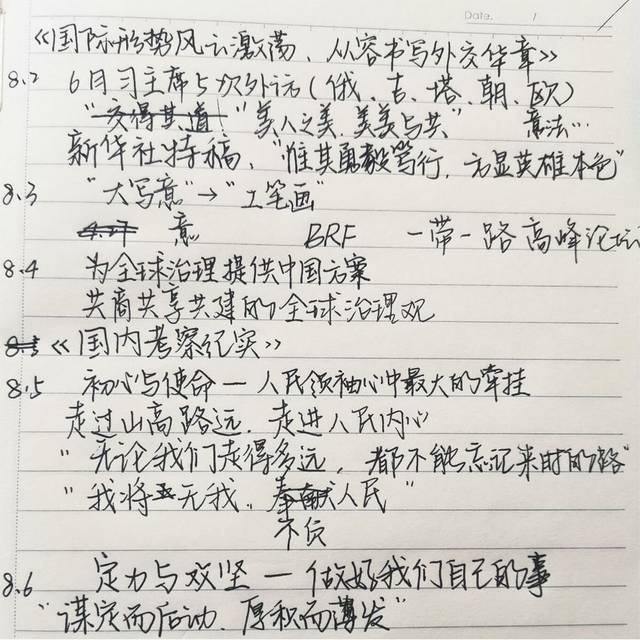 Date. /
《国际形势风云激荡、从容书写外交华章》
8.2 6月习主席5次外访(俄、吉、塔、朝、欧)
"交得其道""美人之美,美美与共" 意法…
新华社特稿,"惟其勇毅笃行,方显英雄本色"
8.3 "大写意"→"工笔画"
意 BRF 一带一路高峰论坛
8.4 为全球治理提供中国方案
共商共享共建的全球治理观
8.5 《国内考察纪实》
8.5 初心与使命—人民领袖心中最大的牵挂
走过山高路远,走进人民内心
"无论我们走得多远,都不能忘记来时的路"
"我将无我,奉献人民"
不负
8.6 定力与攻坚—做好我们自己的事
"谋定而后动,厚积而薄发"